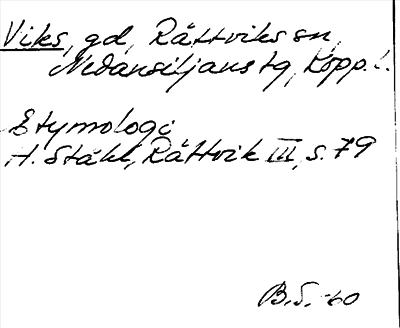 Viks, gd, Rättviks sn,
Nedansiljans tg, Kopp. l.
Etymologi
H. Ståhl, Rättvik III, s. 79
B.S. -60